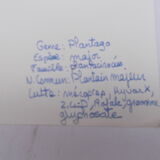 Genre: Plantago
Espèce: major
Famille: plantacinacées
N. Commun: Plantain majeur
Lutte: mécoprop, Kilvar X,
2,4-D, Rafale, gramoxone
glyphosate